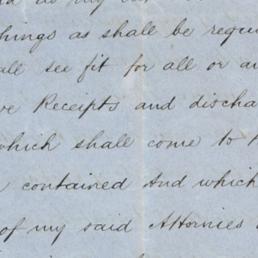 things as shall be requi
all see fit for all or an
ve Receipts and discha
which shall come to
contained And which
of my said Attornies